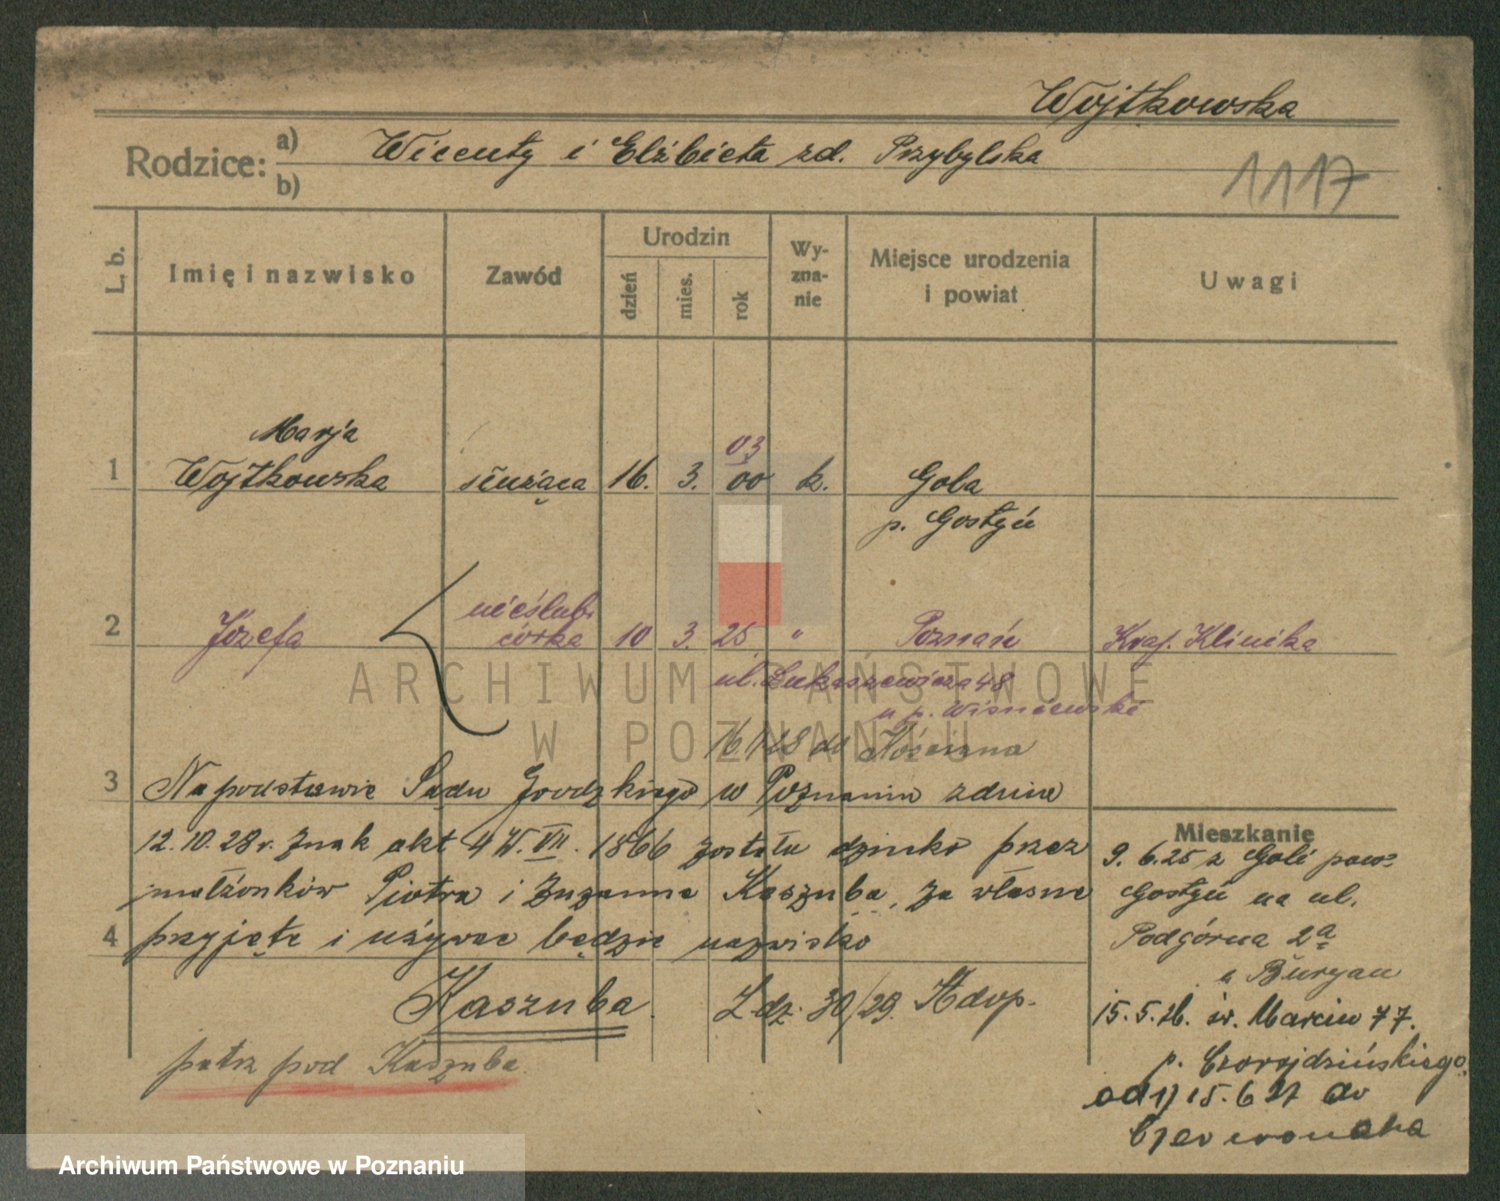 Wojtkowska
Rodzice: a) Wicenty i Elżbieta zd. Przybylska
b)
1117
L. b.
Imię i nazwisko
Zawód
Urodzin
dzień
mies.
rok
Wy-
zna-
nie
Miejsce urodzenia
i powiat
Uwagi
Marja
03
1 Wojtkowska służąca 16. 3. 00 k. Gola
p. Gostyń
nieślub.
2 Józefa córka 10 3. 25 " Poznań Kraj. Klinika
ul. Łukaszewicza 48
u p. Wiśniewski
do Kościana
3 Na podstawie Sądu Grodzkiego w Poznaniu z dnia
12.10.28 r. Znak akt 4 W. VII. 1866 zostało dziecko przez
małżonków Piotra i Zuzanna Kaszuba, za własne
4 przyjęte i używać będzie nazwisko
Kaszuba. L. dz. 30/29. Adop.
patrz pod Kaszuba.
Mieszkanie
9. 6. 25 z Goli pow.
Gostyń na ul.
Podgórna 2a
u Buryan
15. 5. 26. św. Marcin 77.
p.
od 1) 15. 6 27 do
Czerwonaka
ARCHIWUM PAŃSTWOWE
W POZNANIU
Archiwum Państwowe w Poznaniu